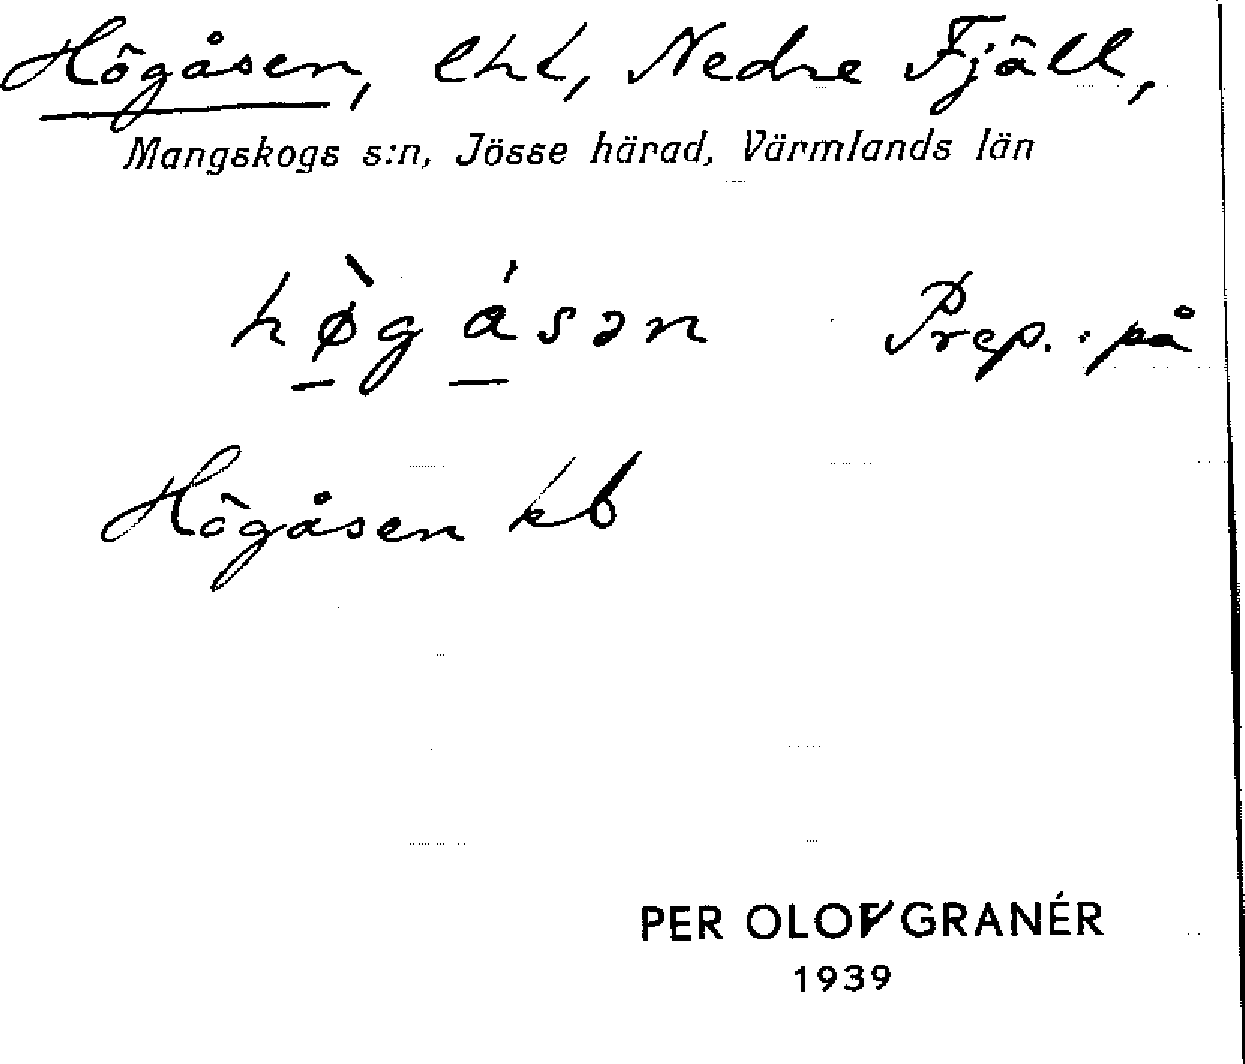 Högåsen, lht, Nedre Fjäll,
Mangskogs s:n, Jösse härad, Värmlands län
hø̀gásən Prep.: på
Högåsen kb
PER OLOF GRANÉR
1939